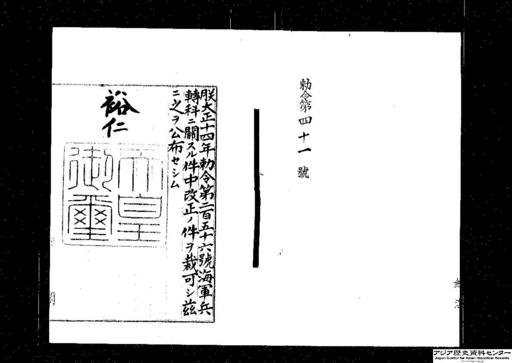 勅令第四十一號
朕大正十四年勅令第二百五十六號海軍兵
轉科ニ關スル件中改正ノ件ヲ裁可シ茲
ニ之ヲ公布セシム
裕仁
天皇
御璽
アジア歴史資料センター
Japan Center for Asian Historical Records